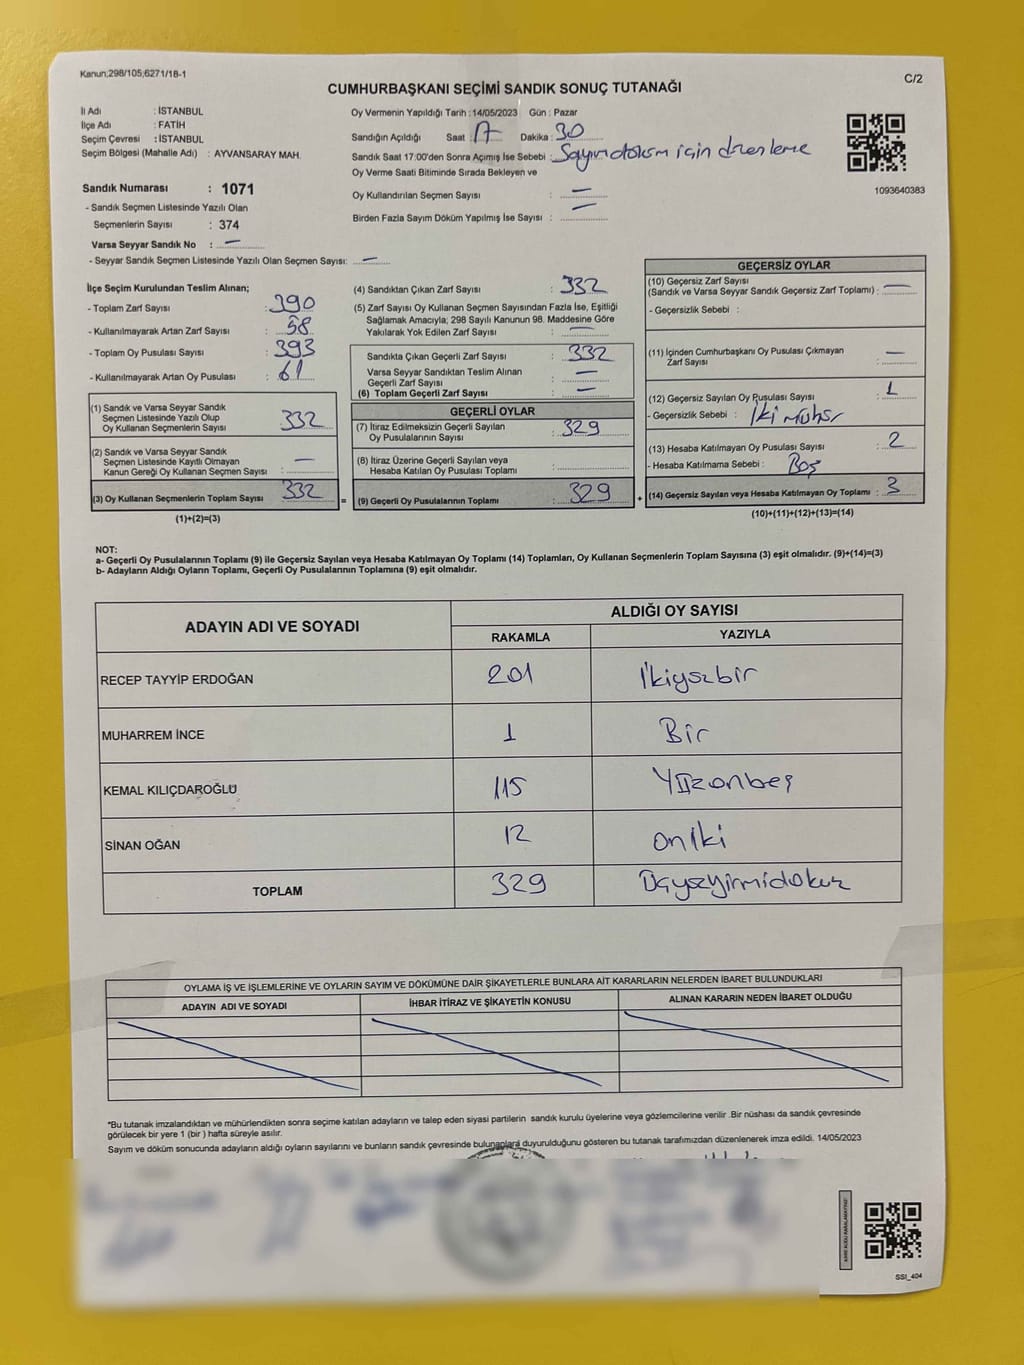 Kanun;298/105;6271/18-1
C/2
CUMHURBAŞKANI SEÇİMİ SANDIK SONUÇ TUTANAĞI
İl Adı : İSTANBUL
İlçe Adı : FATİH
Seçim Çevresi : İSTANBUL
Seçim Bölgesi (Mahalle Adı) : AYVANSARAY MAH.
Oy Vermenin Yapıldığı Tarih : 14/05/2023 Gün : Pazar
Sandığın Açıldığı Saat : 17 Dakika : 30
Sandık Saat 17:00'den Sonra Açımış İse Sebebi : Sayım döküm için düzenleme
Oy Verme Saati Bitiminde Sırada Bekleyen ve
Oy Kullandırılan Seçmen Sayısı : —
Birden Fazla Sayım Döküm Yapılmış İse Sayısı : —
1093640383
Sandık Numarası : 1071
- Sandık Seçmen Listesinde Yazılı Olan
Seçmenlerin Sayısı : 374
Varsa Seyyar Sandık No : —
- Seyyar Sandık Seçmen Listesinde Yazılı Olan Seçmen Sayısı: —
İlçe Seçim Kurulundan Teslim Alınan;
- Toplam Zarf Sayısı : 390
- Kullanılmayarak Artan Zarf Sayısı : 58
- Toplam Oy Pusulası Sayısı : 393
- Kullanılmayarak Artan Oy Pusulası : 61
(1) Sandık ve Varsa Seyyar Sandık
Seçmen Listesinde Yazılı Olup
Oy Kullanan Seçmenlerin Sayısı : 332
(2) Sandık ve Varsa Seyyar Sandık
Seçmen Listesinde Kayıtlı Olmayan
Kanun Gereği Oy Kullanan Seçmen Sayısı : —
(3) Oy Kullanan Seçmenlerin Toplam Sayısı : 332
(1)+(2)=(3)
(4) Sandıktan Çıkan Zarf Sayısı : 332
(5) Zarf Sayısı Oy Kullanan Seçmen Sayısından Fazla İse, Eşitliği
Sağlamak Amacıyla; 298 Sayılı Kanunun 98. Maddesine Göre
Yakılarak Yok Edilen Zarf Sayısı : —
Sandıkta Çıkan Geçerli Zarf Sayısı : 332
Varsa Seyyar Sandıktan Teslim Alınan
Geçerli Zarf Sayısı : —
(6) Toplam Geçerli Zarf Sayısı : —
GEÇERLİ OYLAR
(7) İtiraz Edilmeksizin Geçerli Sayılan
Oy Pusulalarının Sayısı : 329
(8) İtiraz Üzerine Geçerli Sayılan veya
Hesaba Katılan Oy Pusulası Toplamı :
= (9) Geçerli Oy Pusulalarının Toplamı : 329 +
GEÇERSİZ OYLAR
(10) Geçersiz Zarf Sayısı
(Sandık ve Varsa Seyyar Sandık Geçersiz Zarf Toplamı) : —
- Geçersizlik Sebebi :
(11) İçinden Cumhurbaşkanı Oy Pusulası Çıkmayan
Zarf Sayısı : —
(12) Geçersiz Sayılan Oy Pusulası Sayısı : 1
- Geçersizlik Sebebi : İki Mühür
(13) Hesaba Katılmayan Oy Pusulası Sayısı : 2
- Hesaba Katılmama Sebebi : Boş
(14) Geçersiz Sayılan veya Hesaba Katılmayan Oy Toplamı : 3
(10)+(11)+(12)+(13)=(14)
NOT:
a- Geçerli Oy Pusulalarının Toplamı (9) ile Geçersiz Sayılan veya Hesaba Katılmayan Oy Toplamı (14) Toplamları, Oy Kullanan Seçmenlerin Toplam Sayısına (3) eşit olmalıdır. (9)+(14)=(3)
b- Adayların Aldığı Oyların Toplamı, Geçerli Oy Pusulalarının Toplamına (9) eşit olmalıdır.
ADAYIN ADI VE SOYADI
ALDIĞI OY SAYISI
RAKAMLA YAZIYLA
RECEP TAYYİP ERDOĞAN 201 İkiyüzbir
MUHARREM İNCE 1 Bir
KEMAL KILIÇDAROĞLU 115 Yüzonbeş
SİNAN OĞAN 12 oniki
TOPLAM 329 Üçyüzyirmidokuz
OYLAMA İŞ VE İŞLEMLERİNE VE OYLARIN SAYIM VE DÖKÜMÜNE DAİR ŞİKAYETLERLE BUNLARA AİT KARARLARIN NELERDEN İBARET BULUNDUKLARI
ADAYIN ADI VE SOYADI İHBAR İTİRAZ VE ŞİKAYETİN KONUSU ALINAN KARARIN NEDEN İBARET OLDUĞU
*Bu tutanak imzalandıktan ve mühürlendikten sonra seçime katılan adayların ve talep eden siyasi partilerin sandık kurulu üyelerine veya gözlemcilerine verilir .Bir nüshası da sandık çevresinde
görülecek bir yere 1 (bir ) hafta süreyle asılır.
Sayım ve döküm sonucunda adayların aldığı oyların sayılarını ve bunların sandık çevresinde bulunanlara duyurulduğunu gösteren bu tutanak tarafımızdan düzenlenerek imza edildi. 14/05/2023
SSI_404